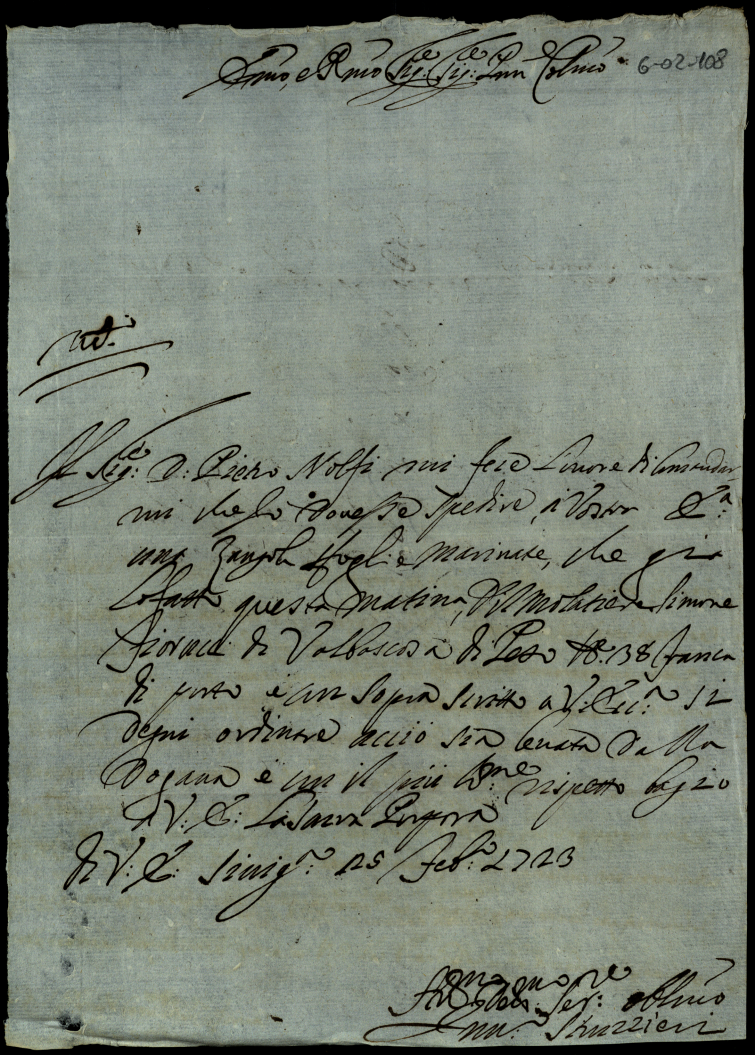 Emo, e Rmo Sigre: Sigre: Pnn Colmo
6-02-108
Il Sigre: D: Pietro Nolfi mi fece l'onore di Comandar
mi che Io dovesse spedire, à Vostra Eª:
una Zangola sfoglie marinate, che già
lo fatto questa matina, Simone
Fioravi di Valbascosa di Peso 138 franca
di porto è con sopra scritto a V: Ecc:ª si
degni ordinare acciò sia levata dalla
Dogana è con il più rispetto bagio
à V: E: La Sacra Porpora
di V: E: Sinigª: 25 Feb:º 1723
Ser:re obbmo
Struzzieri